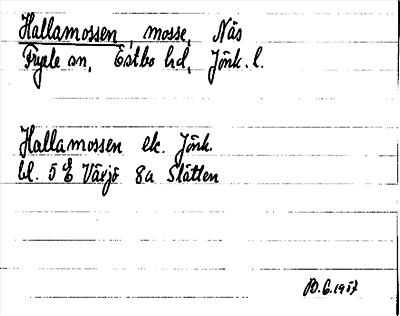 Hallamossen, mosse, Näs
Fryele sn, Östbo hd, Jönk. l.
Hallamossen ek. Jönk.
bl. 5 E Växjö 8a Slätten
B.G. 1957